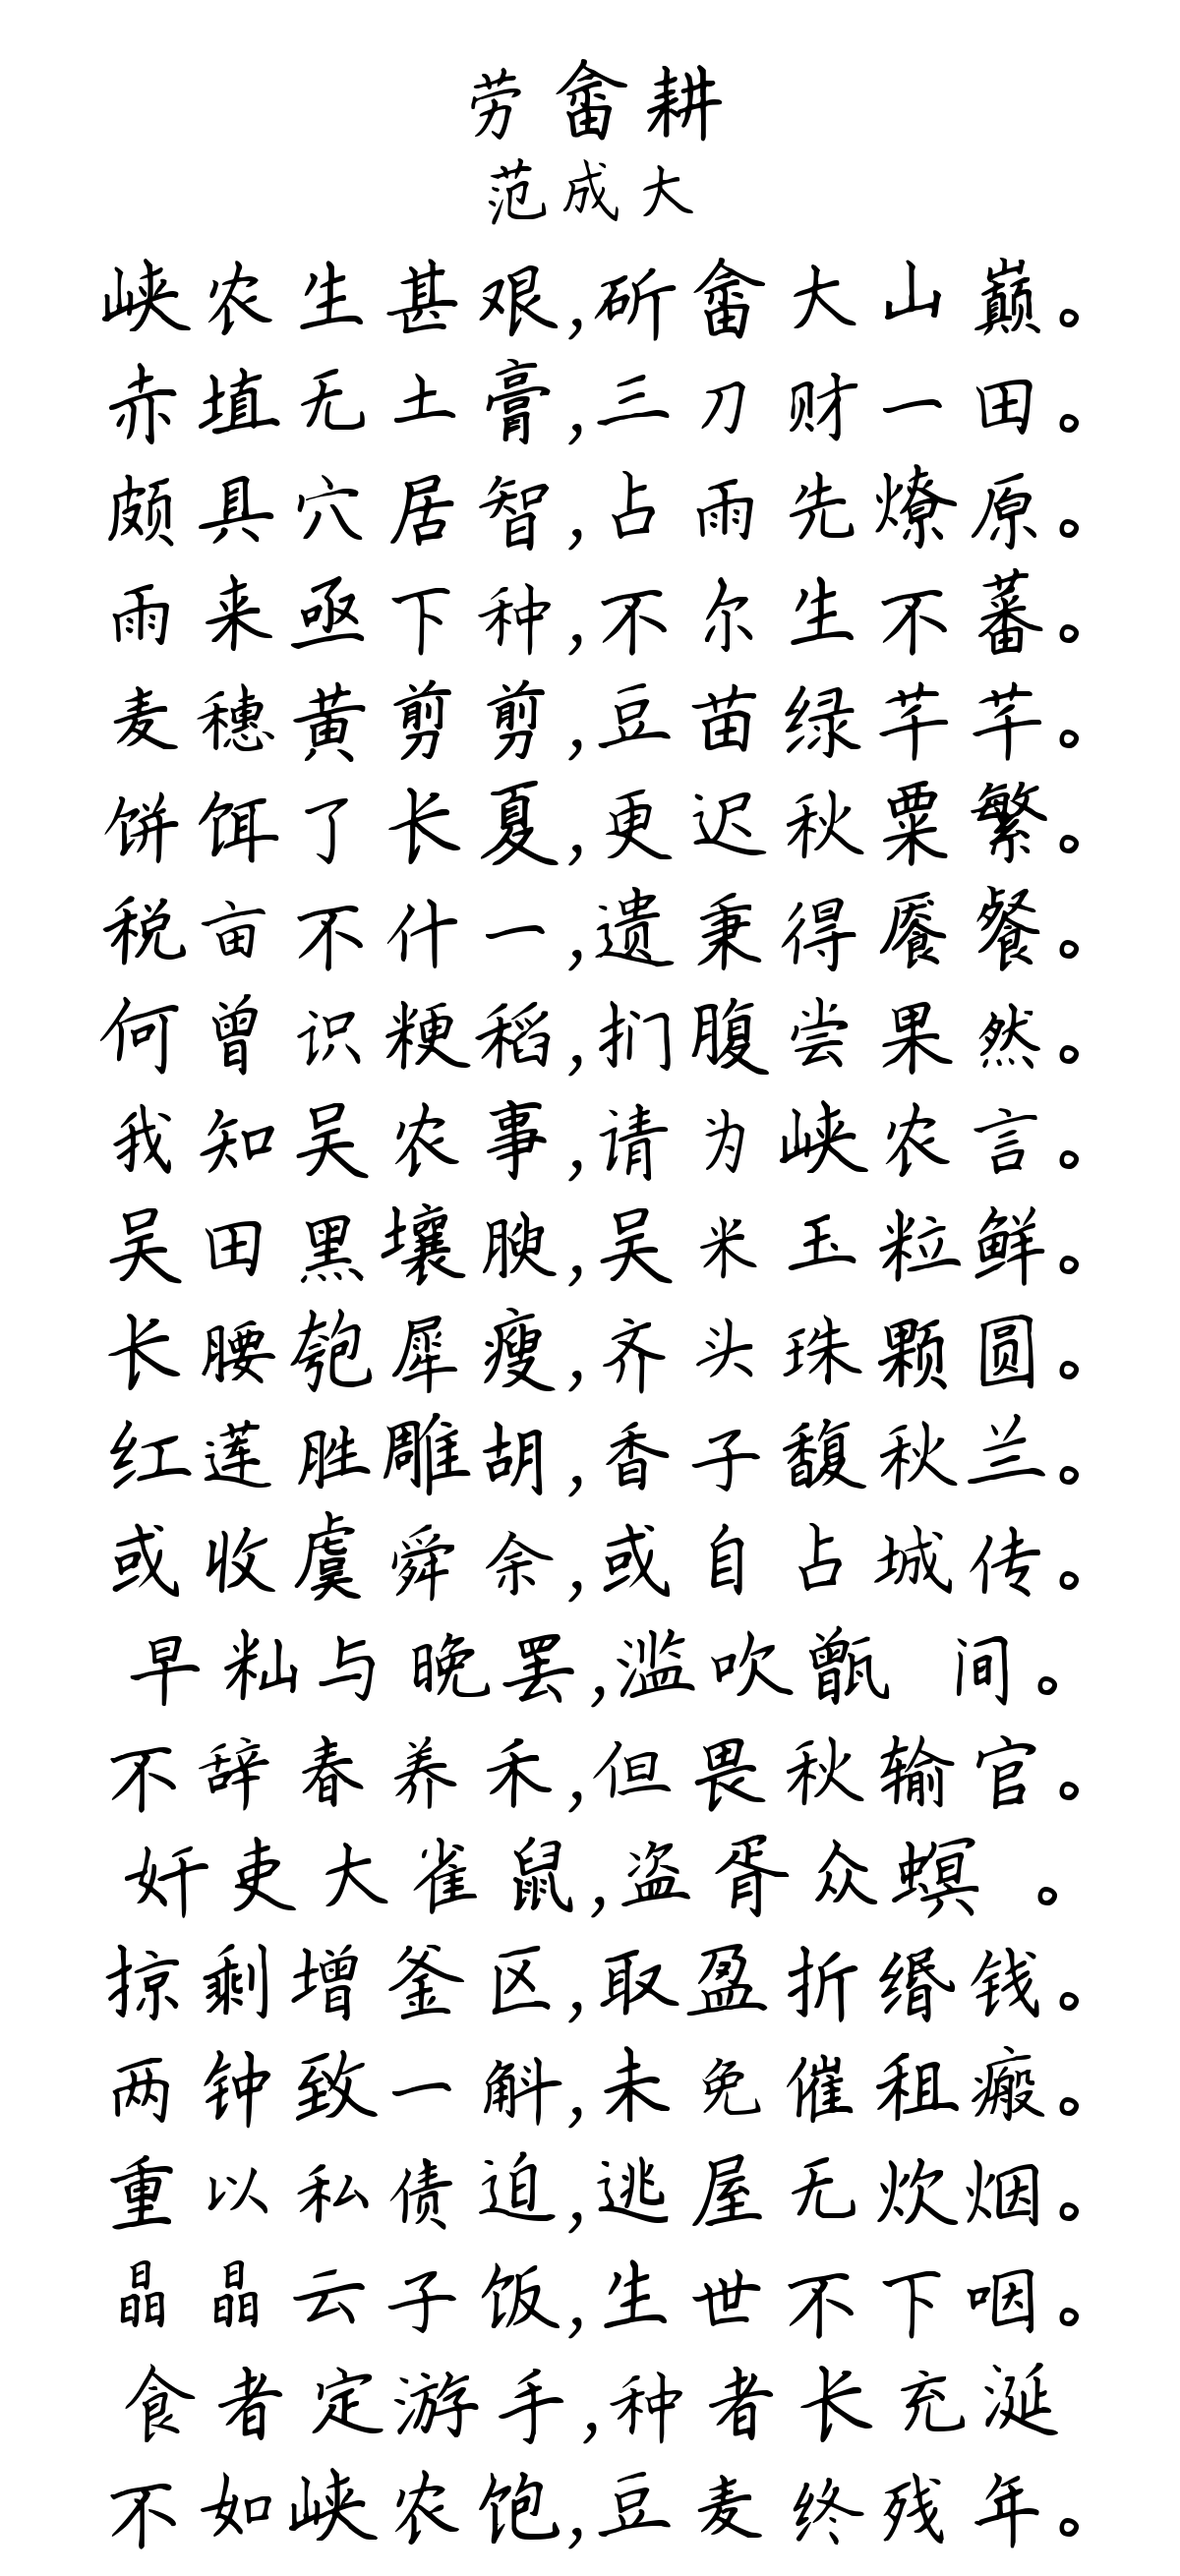 劳畲耕
范成大
峡农生甚艰,斫畲大山巅。
赤埴无土膏,三刀财一田。
颇具穴居智,占雨先燎原。
雨来亟下种,不尔生不蕃。
麦穗黄剪剪,豆苗绿芊芊。
饼饵了长夏,更迟秋粟繁。
税亩不什一,遗秉得餍餐。
何曾识粳稻,扪腹尝果然。
我知吴农事,请为峡农言。
吴田黑壤腴,吴米玉粒鲜。
长腰匏犀瘦,齐头珠颗圆。
红莲胜雕胡,香子馥秋兰。
或收虞舜余,或自占城传。
早籼与晚罢,滥吹甑 间。
不辞春养禾,但畏秋输官。
奸吏大雀鼠,盗胥众螟 。
掠剩增釜区,取盈折缗钱。
两钟致一斛,未免催租瘢。
重以私债迫,逃屋无炊烟。
晶晶云子饭,生世不下咽。
食者定游手,种者长充涎
不如峡农饱,豆麦终残年。